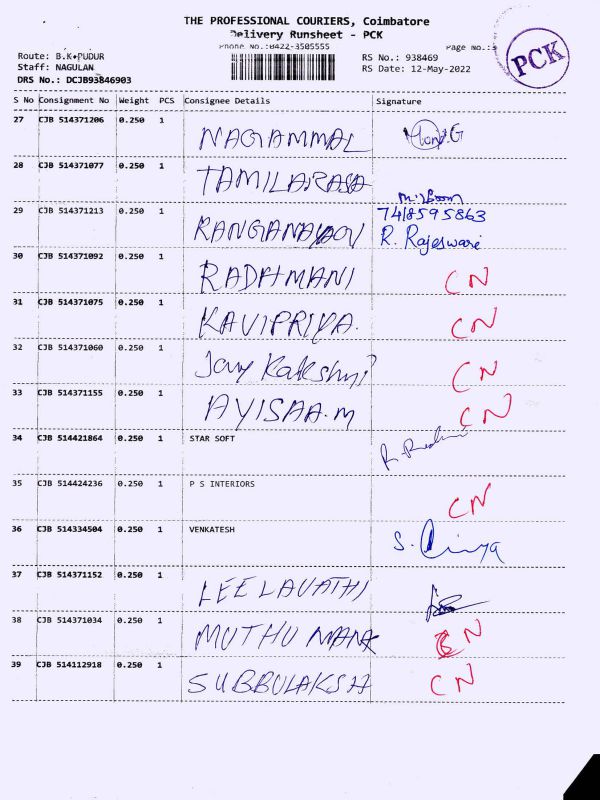 THE PROFESSIONAL COURIERS, Coimbatore
Delivery Runsheet - PCK
Phone No.:0422-3505555
Page no.:3
Route: B.K.PUDUR
Staff: NAGULAN
DRS No.: DCJB93846903
RS No.: 938469
RS Date: 12-May-2022
PCK
S No Consignment No Weight PCS Consignee Details Signature
27 CJB 514371206 0.250 1 NAGAMMAL
28 CJB 514371077 0.250 1 TAMILARASA
29 CJB 514371213 0.250 1 7418595863
R. Rajeswari
30 CJB 514371092 0.250 1 RADHMANI CN
31 CJB 514371075 0.250 1 KAVIPRIYA. CN
32 CJB 514371060 0.250 1 CN
33 CJB 514371155 0.250 1 AYISAA.M CN
34 CJB 514421864 0.250 1 STAR SOFT
35 CJB 514424236 0.250 1 P S INTERIORS CN
36 CJB 514334504 0.250 1 VENKATESH S.
37 CJB 514371152 0.250 1 LEELAVATHI
38 CJB 514371034 0.250 1 MUTHU MANA CN
39 CJB 514112918 0.250 1 SUBBULAKSH CN